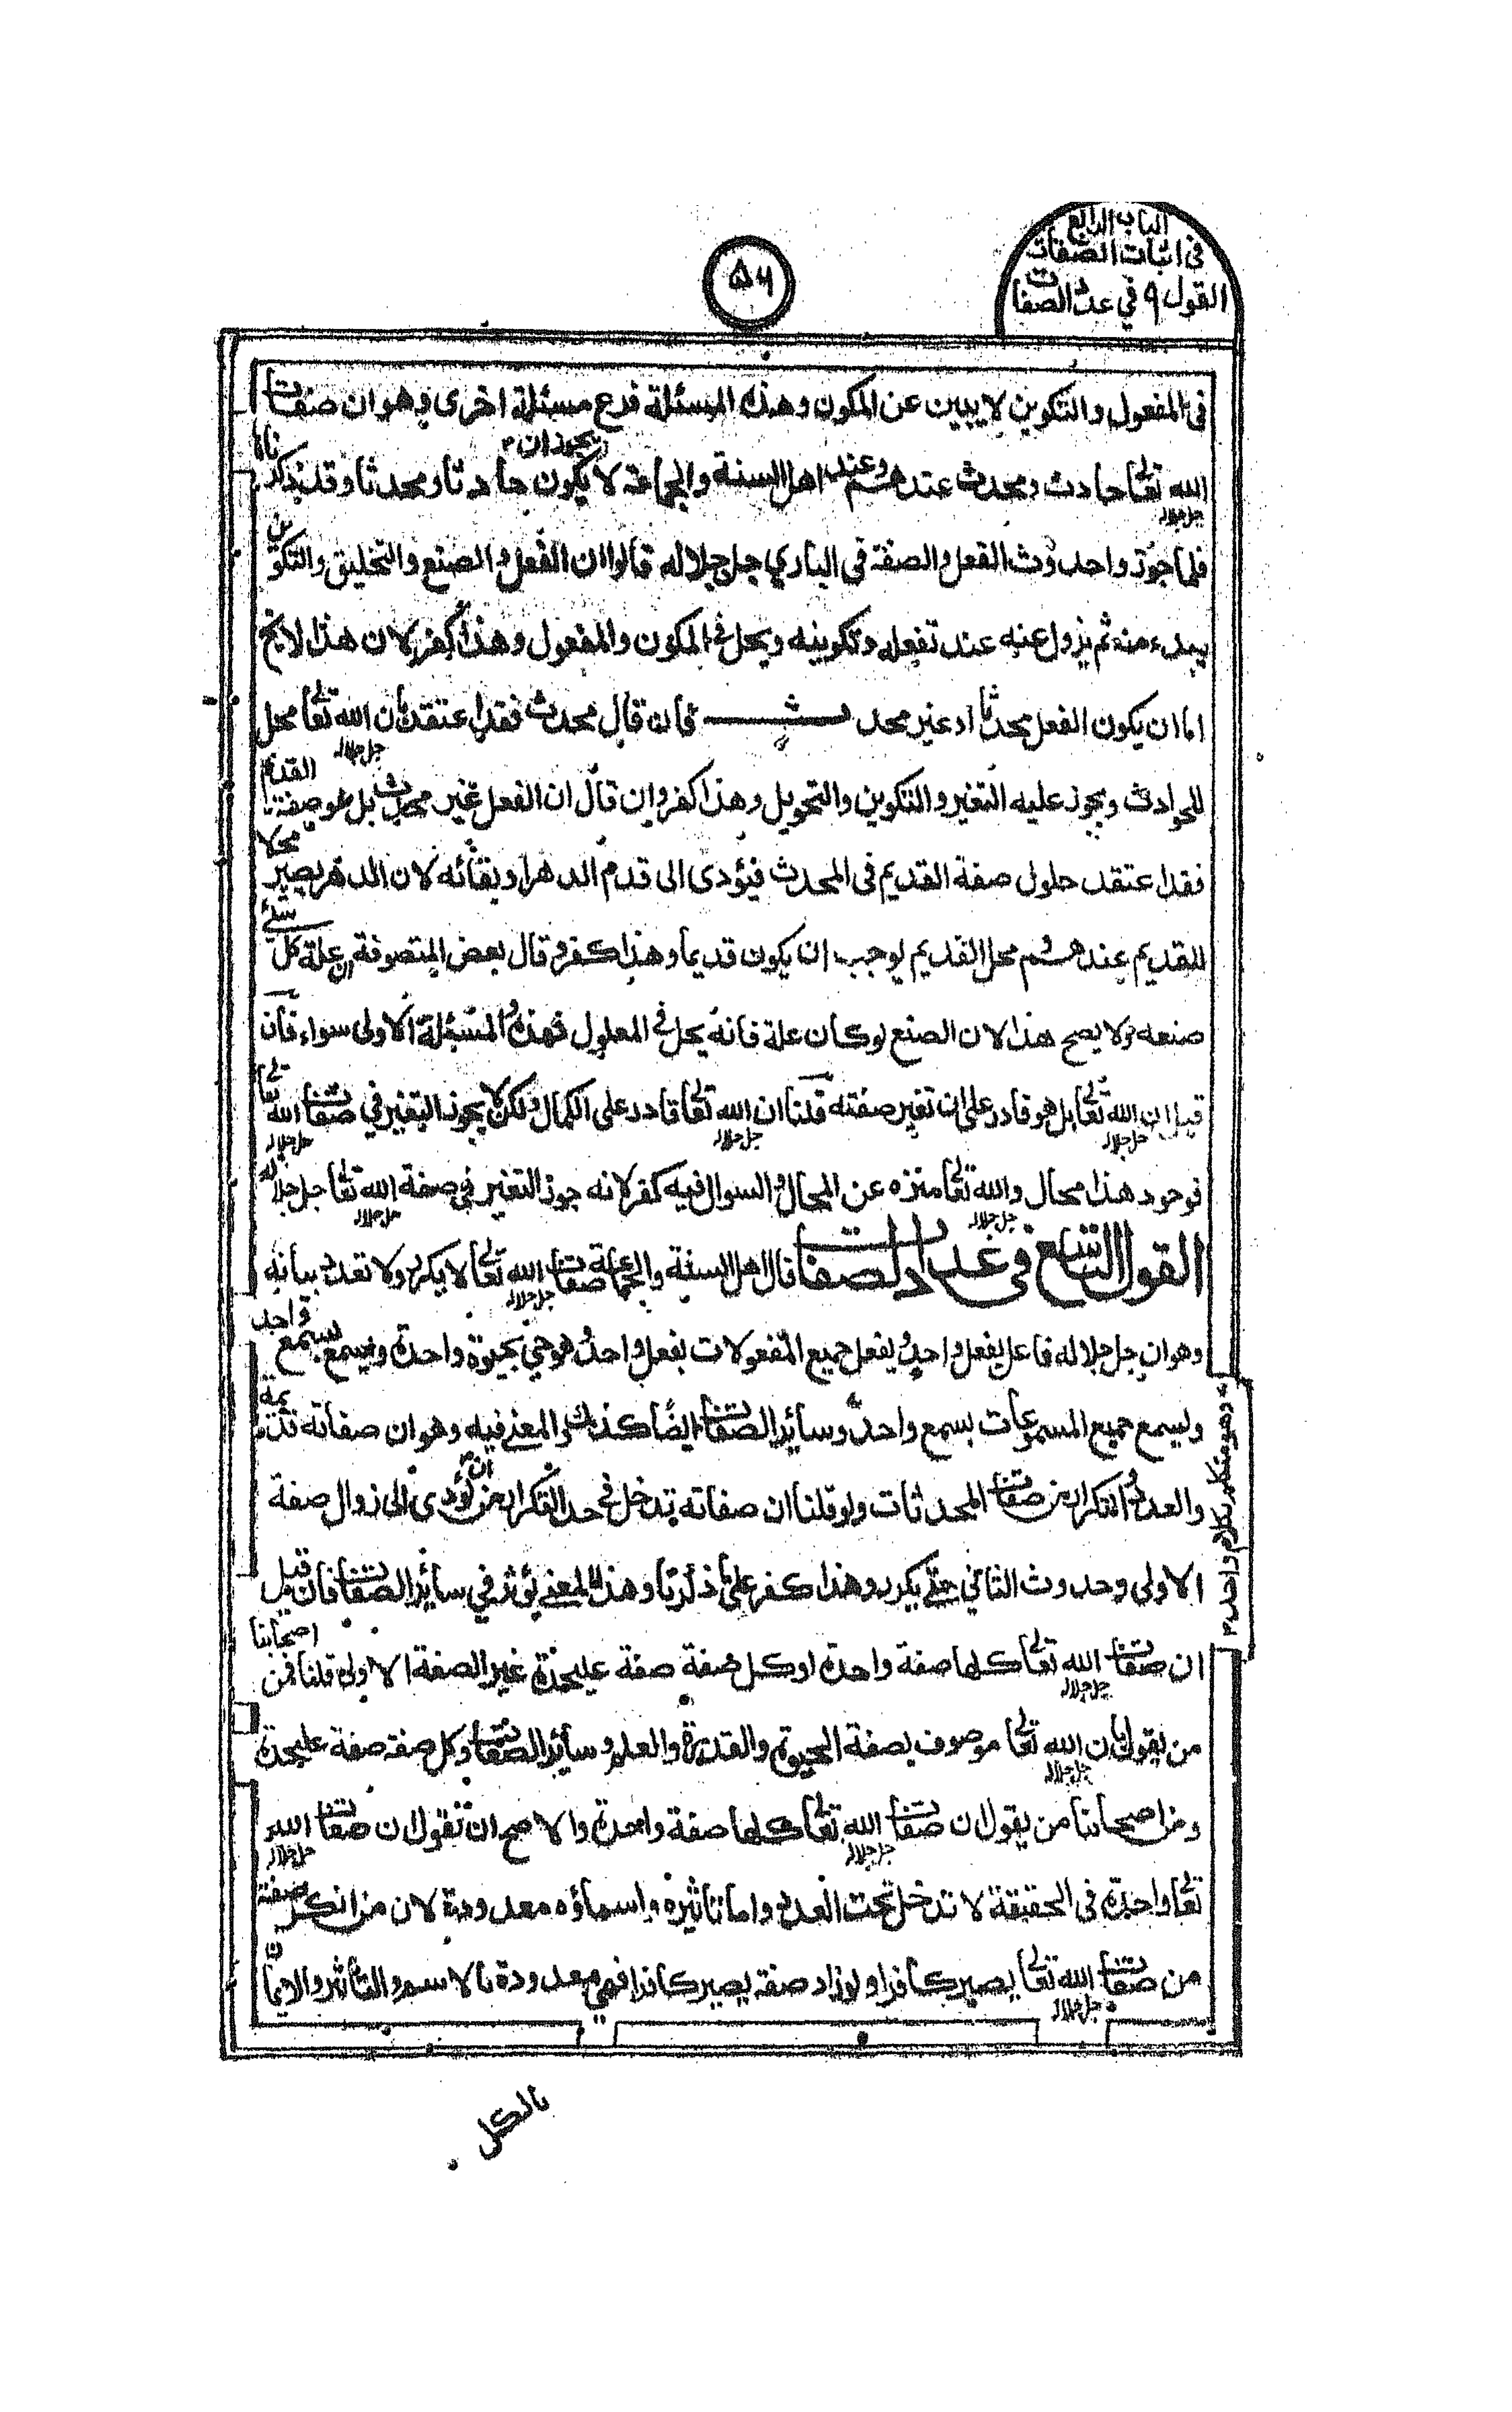 الباب الرابع
في اثبات الصفات
القول ٩ في عدد الصفات
٥٦
في المفعول والتكوين لا يبين عن المكون وهذه المسئلة فرع مسئلة اخرى وهو ان صفات
الله تعالى جل جلاله حادث ومحدث عندهم وعند اهل السنة والجماعة لا يجوز ان يكون حادثا ومحدثا وقد ذكرنا
فلما جوزوا حدوث الفعل والصفة في الباري جل جلاله قالوا ان الفعل والصنع والتخليق والتكوين
يبدء منه ثم يزول عنه عند تفعله وتكوينه ويحل في المكون والمفعول وهذا كفر لان هذا لا يخ
اما ان يكون الفعل محدثا او غير محدث فان قال محدث فقد اعتقد بان الله تعالى جل جلاله محل
للحوادث ويجوز عليه التغير والتكوين والتحويل وهذا كفر وان قال ان الفعل غير محدث بل هو صفته القديم
فقد اعتقد حلول صفة القديم في المحدث فيؤدى الى قدم الدهر او بقائه لان الدهر يصير محلا
للقديم عندهم ومحل القديم يوجب ان يكون قديما وهذا كفر وقال بعض المتصوفة ان علة كل شئ
صنعه ولا يصح هذا لان الصنع لو كان علة فانه يحل في المعلول فهذه والمسئلة الاولى سواء فان
قيل ان الله تعالى جل جلاله بل هو قادر على ان تغير صفته قلنا ان الله تعالى جل جلاله قادر على الكمال ولكن لا يجوز التغير في صفات الله تعالى جل جلاله
فوجود هذا محال والله تعالى جل جلاله منزه عن المحال والسوال فيه كفر لانه جوز التغير في صفة الله تعالى جل جلاله
القول التاسع في عدد الصفات قال اهل السنة والجماعة صفات الله تعالى جل جلاله لا يكرر ولا تعدد بيانه
وهو ان جل جلاله فاعل بفعل واحد ويفعل جميع المفعولات بفعل واحد وهو حي بحيوة واحدة ويسمع بسمع واحد
ويسمع جميع المسموعات بسمع واحد وسائر الصفات ايضا كذلك والمعنى فيه وهو ان صفاته قديمة
وهو متكلم بكلام واحد
والعدد والتكرار من صفات المحدثات ولو قلنا ان صفاته تدخل في حد التكرار يؤدى الى زوال صفة
الاولى وحدوث الثاني حتى يكرر وهذا كفر على ما ذكرنا وهذا المعنى يؤثر في سائر الصفات فان قيل
ان صفات الله تعالى جل جلاله كلها صفة واحدة او كل صفة صفة عليحدة غير الصفة الاولى قلنا فمن اصحابنا
من يقول بان الله تعالى جل جلاله موصوف بصفة الحيوة والقدرة والعلم وسائر الصفات وكل صفة صفة عليحدة
ومن اصحابنا من يقول ان صفات الله تعالى جل جلاله كلها صفة واحدة والاصح ان نقول ان صفات الله جل جلاله
تعالى واحدة في الحقيقة لا تدخل تحت العدد واما تاثيره واسماؤه معدودة لان من انكر صفة
من صفات الله تعالى جل جلاله يصير كافرا ولو زاد صفة يصير كافرا فهي معدودة بالاسم والتأثير والايمان
بالكل